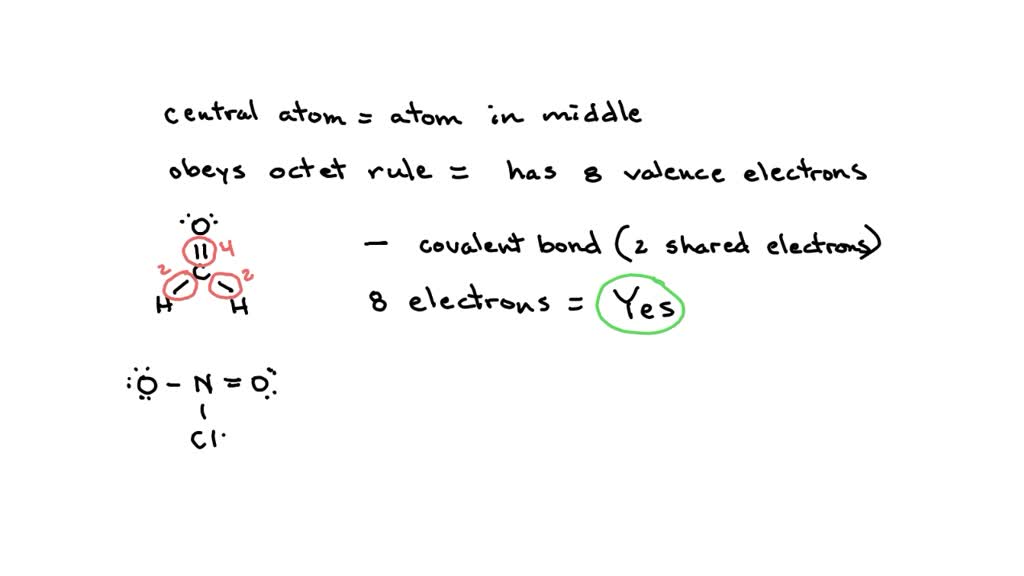 central atom = atom in middle
obeys octet rule = has 8 valence electrons
:O:
|| 4
2 C 2
H H
— covalent bond (2 shared electrons)
8 electrons = Yes
:O - N = O:
|
Cl·